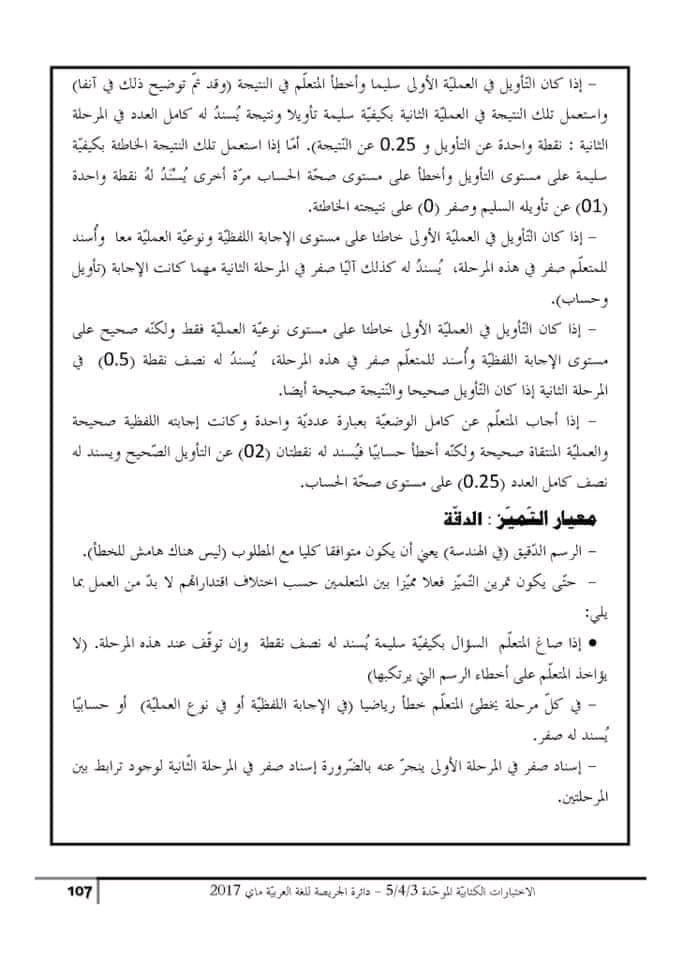 – إذا كان التّأويل في العمليّة الأولى سليما وأخطأ المتعلّم في النتيجة (وقد تمّ توضيح ذلك في آنفا)
واستعمل تلك النتيجة في العمليّة الثانية بكيفيّة سليمة تأويلا ونتيجة يُسندُ له كامل العدد في المرحلة
الثانية : نقطة واحدة عن التأويل و 0.25 عن النّتيجة). أمّا إذا استعمل تلك النتيجة الخاطئة بكيفيّة
سليمة على مستوى التأويل وأخطأ على مستوى صحّة الحساب مرّة أخرى يُسْنَدُ لهُ نقطة واحدة
(01) عن تأويله السليم وصفر (0) على نتيجته الخاطئة.
– إذا كان التّأويل في العملية الأولى خاطئا على مستوى الإجابة اللفظيّة ونوعيّة العمليّة معا وأُسند
للمتعلّم صفر في هذه المرحلة، يُسندُ له كذلك آليّا صفر في المرحلة الثانية مهما كانت الإجابة (تأويل
وحساب).
– إذا كان التّأويل في العملية الأولى خاطئا على مستوى نوعيّة العمليّة فقط ولكنّه صحيح على
مستوى الإجابة اللفظيّة وأُسند للمتعلّم صفر في هذه المرحلة، يُسندُ له نصف نقطة (0.5) في
المرحلة الثانية إذا كان التّأويل صحيحا والنّتيجة صحيحة أيضا.
– إذا أجاب المتعلّم عن كامل الوضعيّة بعبارة عدديّة واحدة وكانت إجابته اللفظية صحيحة
والعمليّة المنتقاة صحيحة ولكنّه أخطأ حسابيّا فيُسند له نقطتان (02) عن التأويل الصّحيح ويسند له
نصف كامل العدد (0.25) على مستوى صحّة الحساب.
معيار التّميّز : الدقّة
– الرسم الدّقيق (في الهندسة) يعني أن يكون متوافقا كليا مع المطلوب (ليس هناك هامش للخطأ).
– حتّى يكون تمرين التّميّز فعلا مميّزا بين المتعلمين حسب اختلاف اقتداراتهم لا بدّ من العمل بما
يلي:
• إذا صاغ المتعلّم السؤال بكيفيّة سليمة يُسند له نصف نقطة وإن توقّف عند هذه المرحلة. (لا
يؤاخذ المتعلّم على أخطاء الرسم التي يرتكبها)
– في كلّ مرحلة يخطئ المتعلّم خطأ رياضيا (في الإجابة اللفظيّة أو في نوع العمليّة) أو حسابيّا
يُسند له صفر.
– إسناد صفر في المرحلة الأولى ينجرّ عنه بالضّرورة إسناد صفر في المرحلة الثّانية لوجود ترابط بين
المرحلتين.
الاختبارات الكتابيّة الموحّدة 5/4/3 – دائرة الجريصة للغة العربيّة ماي 2017
107